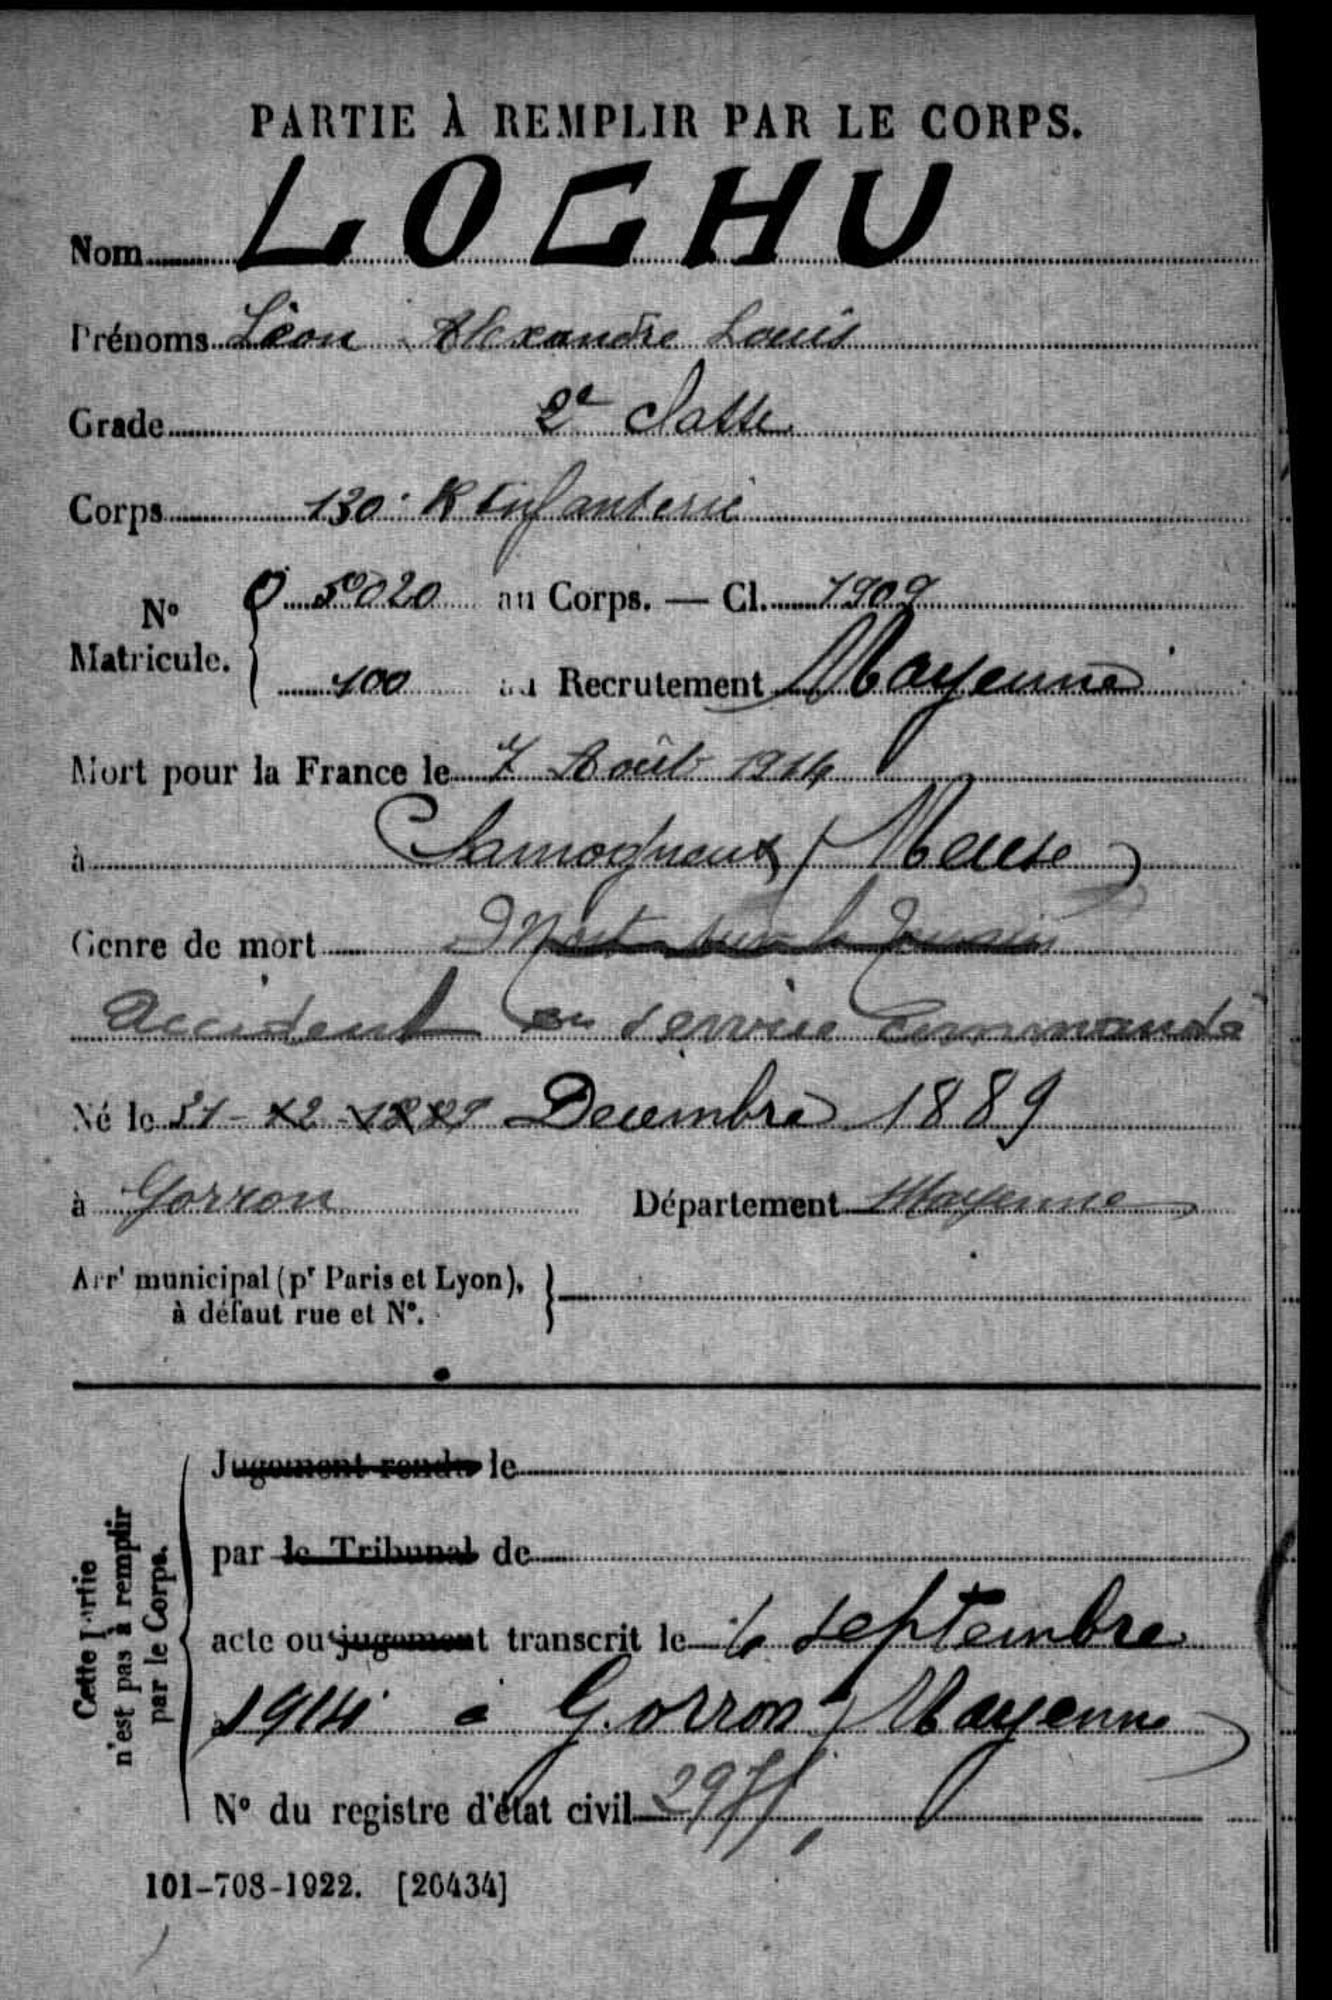 PARTIE À REMPLIR PAR LE CORPS.
Nom LOCHU
Prénoms Léon Alexandre Louis
Grade 2e classe
Corps 130e R Infanterie
No Matricule. { 5020 au Corps. — Cl. 1909
100 au Recrutement Mayenne
Mort pour la France le 7 Août 1914
à Samogneux (Meuse)
Genre de mort Mort sur le Terrain
accident en service commandé
Né le 31 - 12 - 1889 Decembre 1889
à Gorron Département Mayenne
Arrt municipal (pr Paris et Lyon), à défaut rue et No.
Cette partie n'est pas à remplir par le Corps.
Jugement rendu le
par le Tribunal de
acte ou jugement transcrit le septembre
1914 à Gorron (Mayenne)
No du registre d'état civil
101-708-1922. [26434]